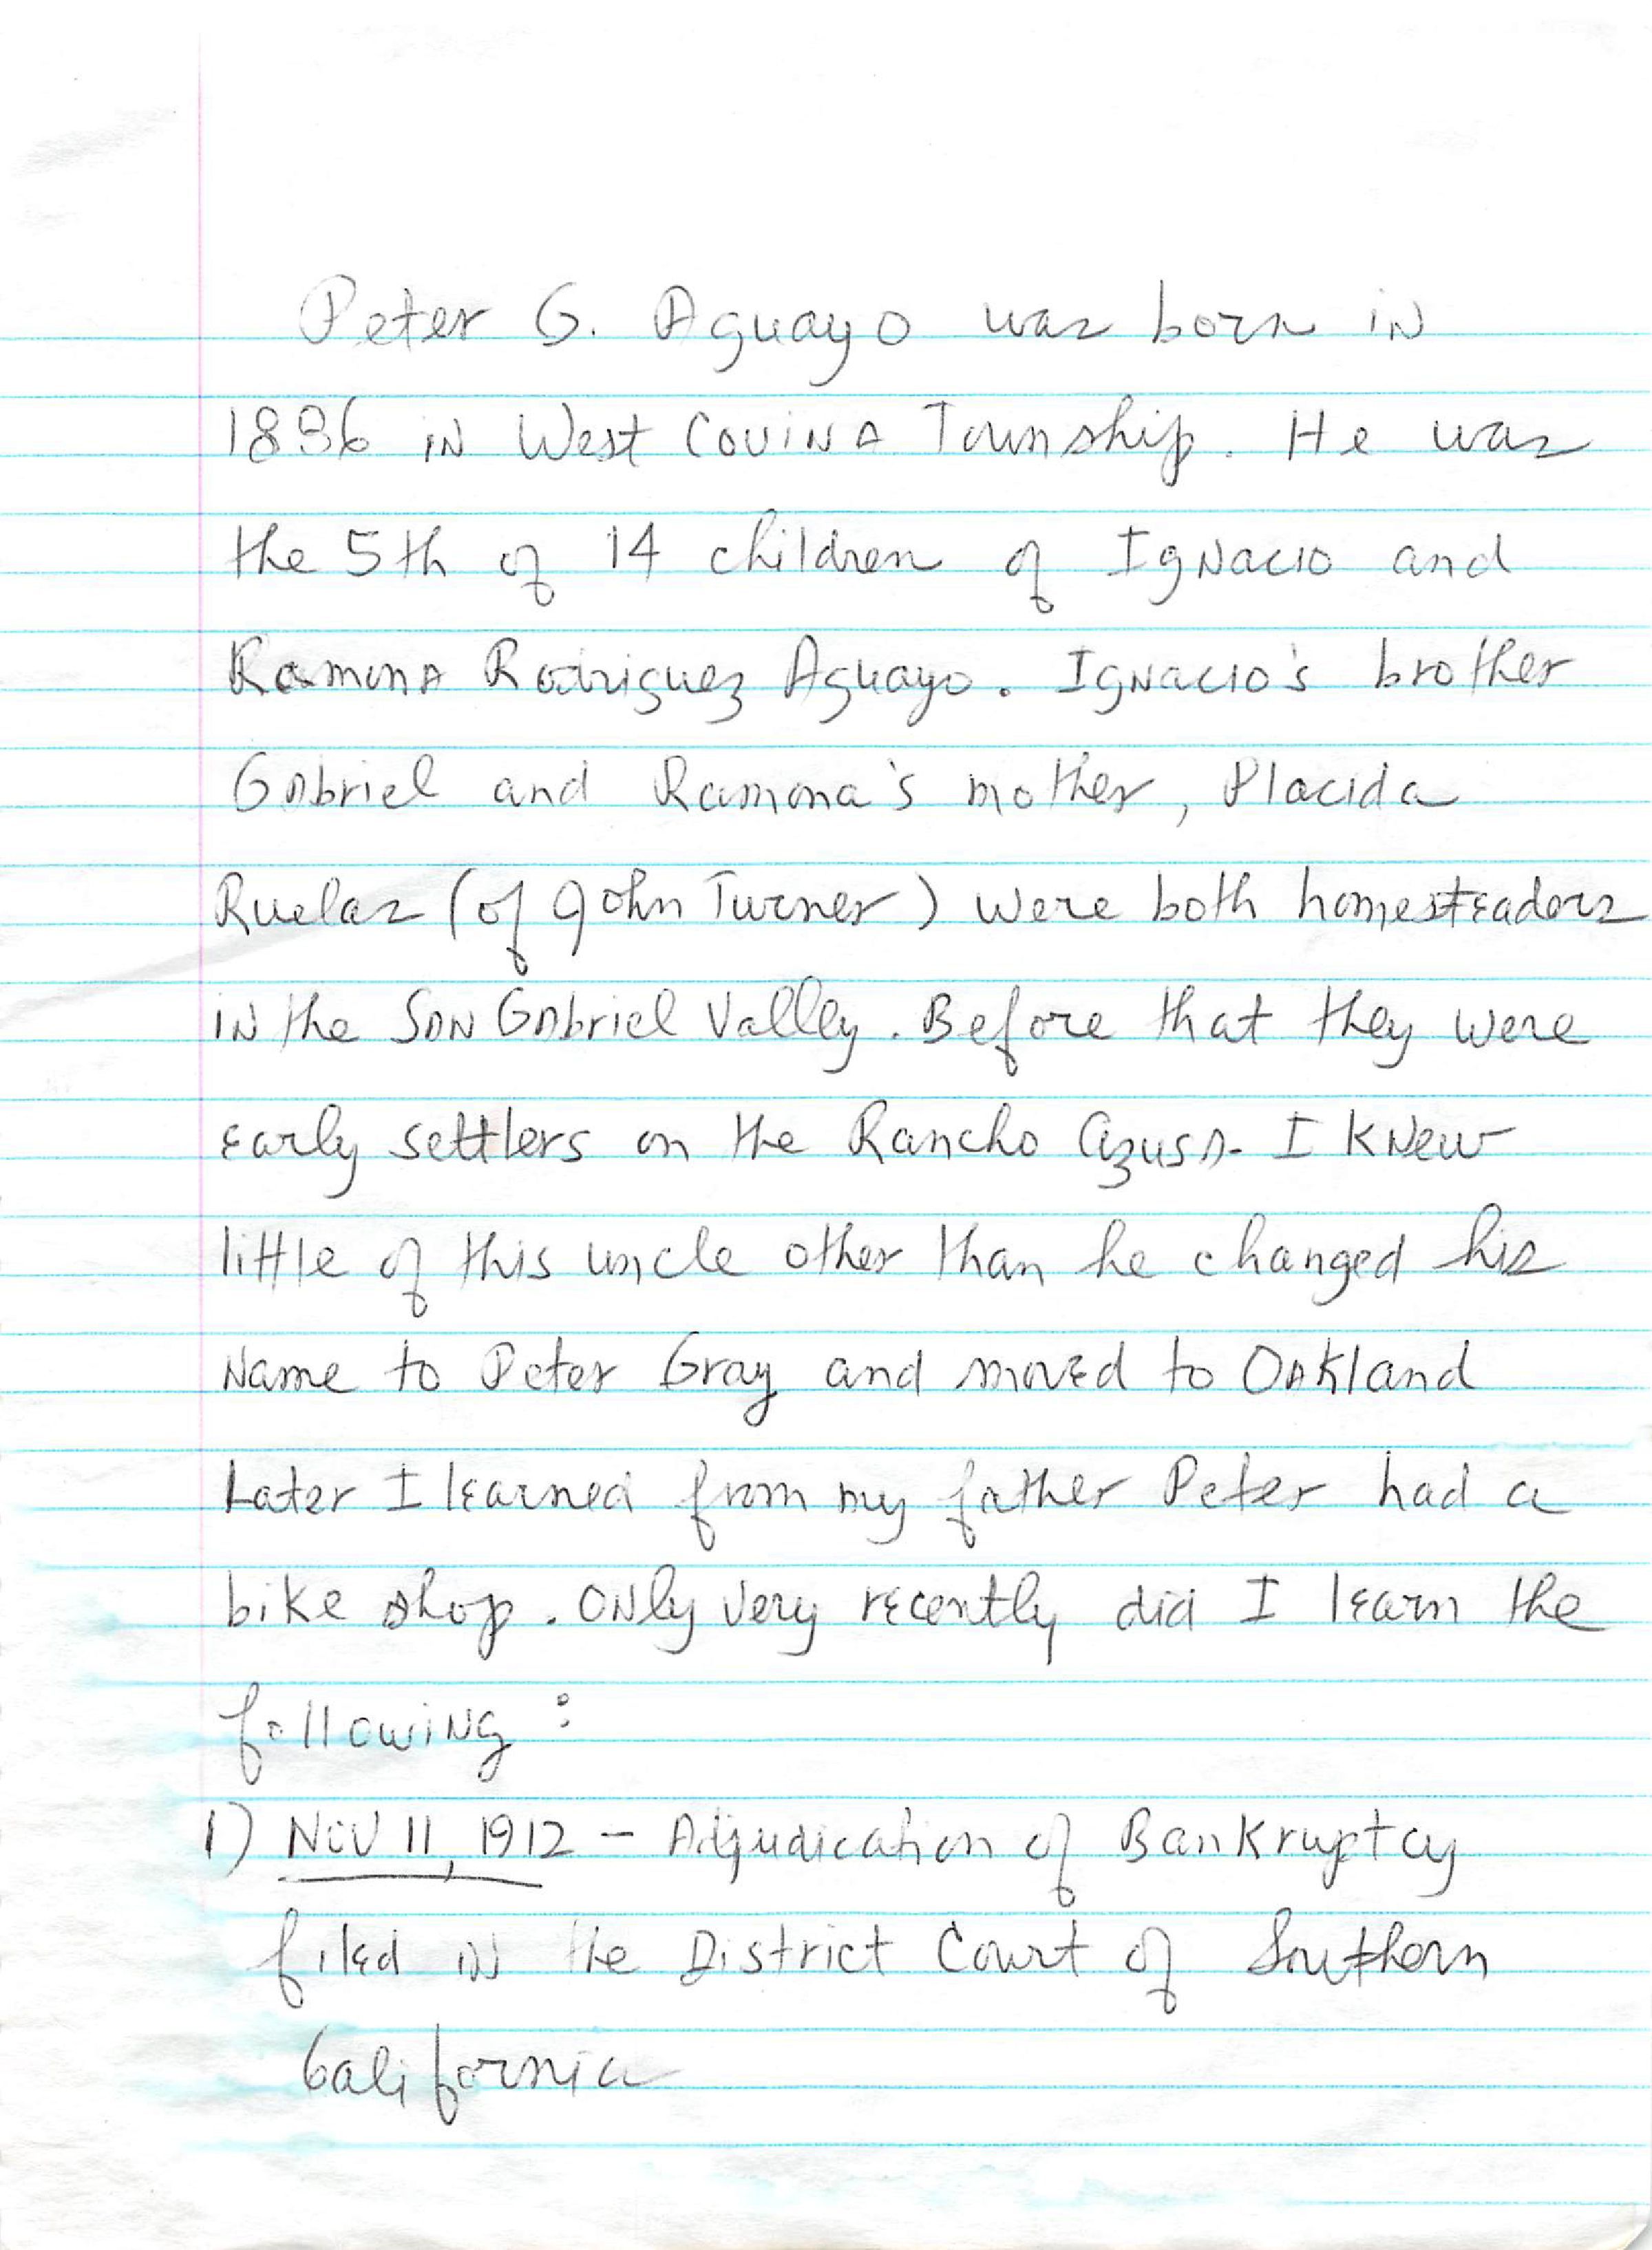 Peter G. Aguayo was born in
1886 in West Covina Township. He was
the 5th of 14 children of Ignacio and
Ramona Rodriguez Aguayo. Ignacio's brother
Gabriel and Ramona's mother, Placida
Ruelas (of John Turner) were both homesteaders
in the San Gabriel Valley. Before that they were
early settlers on the Rancho Azusa. I knew
little of this uncle other than he changed his
name to Peter Gray and moved to Oakland
Later I learned from my father Peter had a
bike shop. Only very recently did I learn the
following:
1) Nov 11, 1912 - Adjudication of Bankruptcy
filed in the District Court of Southern
California